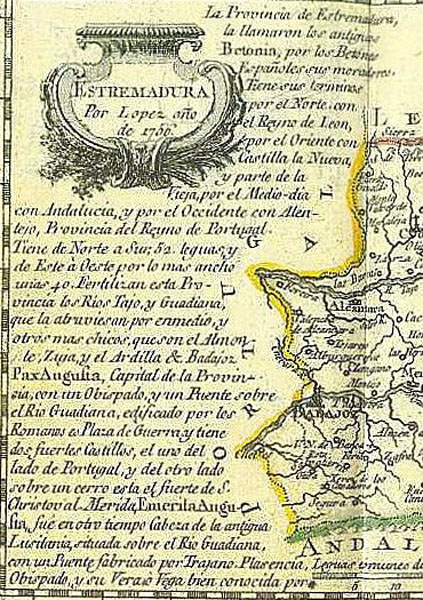 La Provincia de Estremadura,
la llamaron los antiguos
Betonia, por los Betones
Españoles sus moradores.
Tiene sus terminos
por el Norte, con
el Reyno de Leon,
por el Oriente con
Castilla la Nueva,
y parte de la
Vieja, por el Medio-dia
con Andalucia, y por el Occidente con Alen-
tejo, Provincia del Reyno de Portugal.
Tiene de Norte a Sur, 52. leguas, y
de Este à Oeste por lo mas ancho
unas 40. Fertilizan esta Pro-
vincia los Rios Tajo, y Guadiana,
que la atraviesan por enmedio, y
otros mas chicos, que son el Almon-
te, Zuja, y el Ardilla & Badajoz
Pax Augusta, Capital de la Provin-
sia, con un Obispado, y un Puente sobre
el Rio Guadiana, edificado por los
Romanos es Plaza de Guerra, y tiene
dos fuertes Castillos, el uno del
lado de Portugal, y del otro lado
sobre un cerro esta el fuerte de S.
Christoval Merida, Emerita Augu-
sta, fué en otro tiempo Cabeza de la antigua
Lusitania, situada sobre el Rio Guadiana,
con un Puente fabricado por Trajano. Plasencia,
Obispado, y su Vera o Vega bien conocida por
ESTREMADURA
Por Lopez año
de 1756
PORTUGAL
LE
Sierra
Alcantara
R. Tajo
Alburquerque
BADAJOZ
Segura
ANDAL
Leguas comunes de
5 10